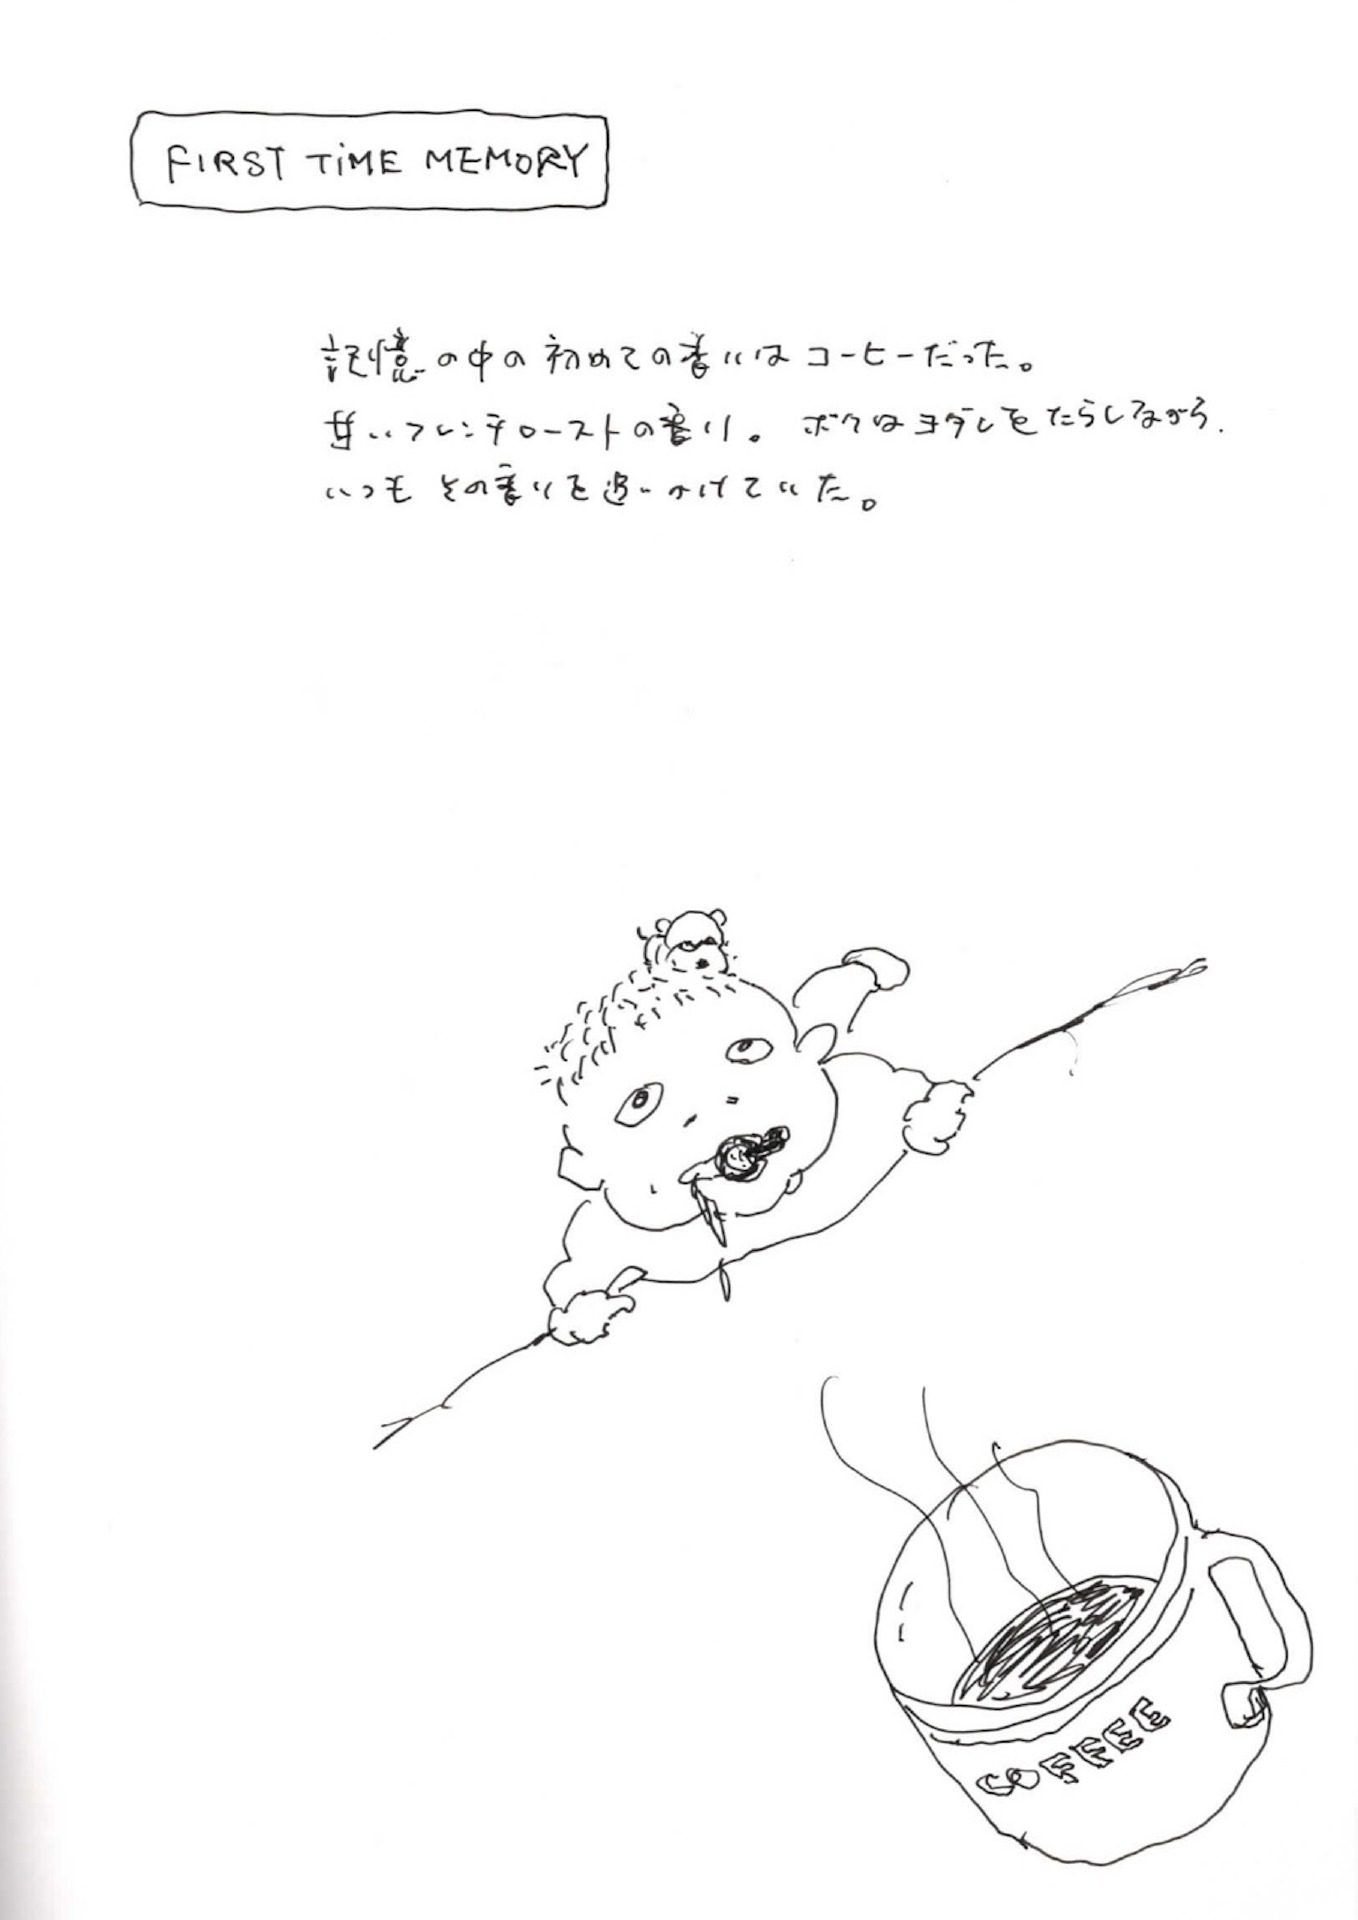 FIRST TIME MEMORY
記憶の中の初めての香いはコーヒーだった。
甘いフレンチローストの香り。 ボクはヨダレをたらしながら、
いつも その香りを追いかけていた。
COFFEE